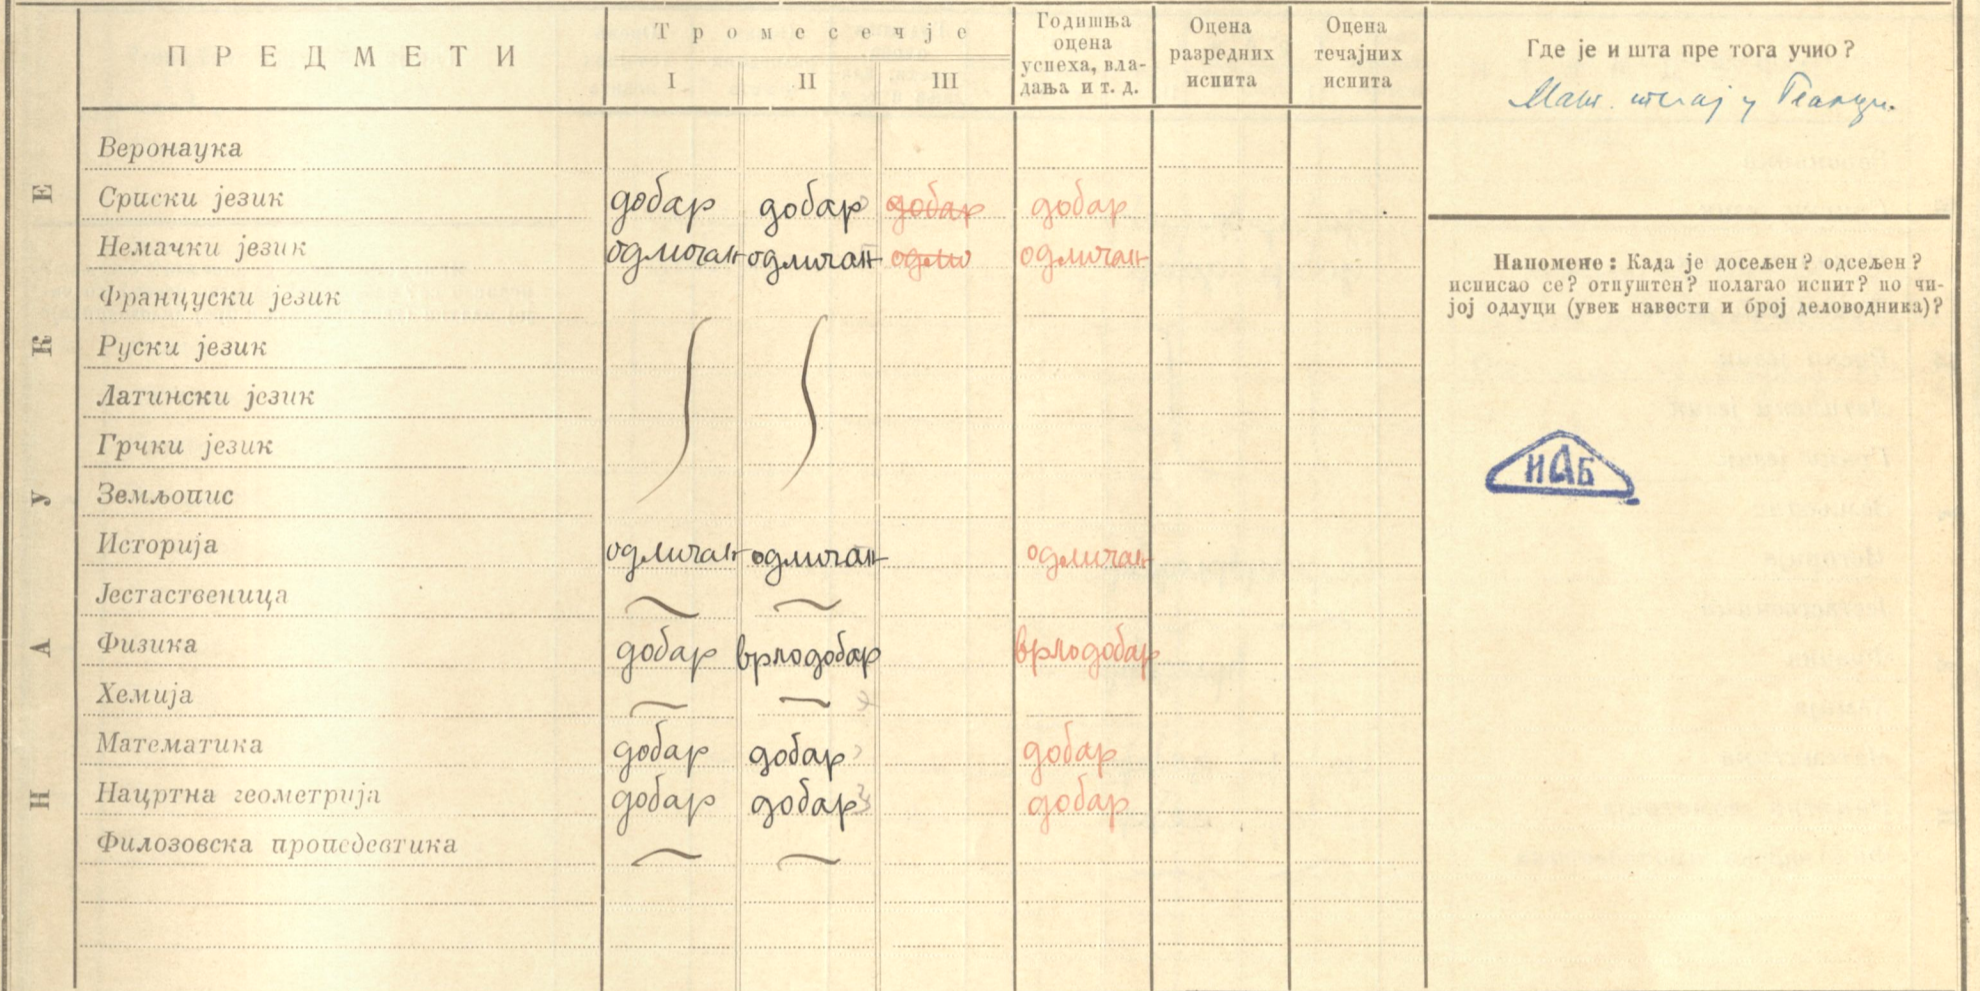 ПРЕДМЕТИ
Тромесечје
I II III
Годишња
оцена
успеха, вла-
дања и т. д.
Оцена
разредних
испита
Оцена
течајних
испита
Где је и шта пре тога учио?
у
НАУКЕ
Веронаука
Српски језик добар добар добар добар
Немачки језик одличан одличан одли одличан
Француски језик
Руски језик
Латински језик
Грчки језик
Земљопис
Историја одличан одличан одличан
Јестаственица
Физика добар врлодобар врлодобар
Хемија
Математика добар добар добар
Нацртна геометрија добар добар добар
Филозовска пропедевтика
Напомене: Када је досељен? одсељен?
исписао се? отпуштен? полагао испит? по чи-
јој одлуци (увек навести и број деловодника)?
ИАБ